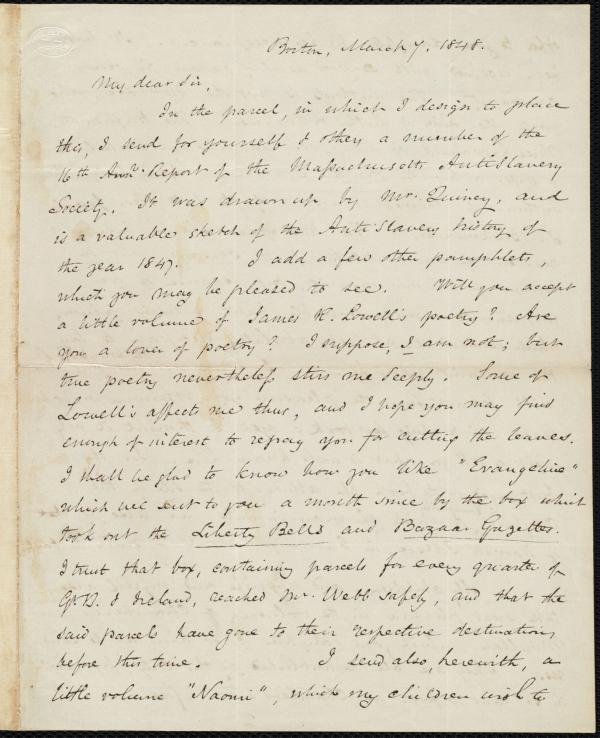 Boston, March 7. 1848.
My dear Sir,
In the parcel, in which I design to place
this, I send for yourself & others a number of the
16th Annl. Report of the Massachusetts AntiSlavery
Society. It was drawn up by Mr. Quincy, and
is a valuable sketch of the AntiSlavery history of
the year 1847. I add a few other pamphlets,
which you may be pleased to see. Will you accept
a little volume of James R. Lowell's poetry? Are
you a lover of poetry? I suppose, I am not; but
true poetry nevertheless stirs me deeply. Some of
Lowell's affects me thus, and I hope you may find
enough of interest to repay you for cutting the leaves.
I shall be glad to know how you like "Evangeline"
which we sent to you a month since by the box which
took out the Liberty Bells and Bazaar Gazettes.
I trust that box, containing parcels for every quarter of
Gt. B. & Ireland, reached Mr. Webb safely, and that the
said parcels have gone to their respective destinations
before this time. I send also, herewith, a
little volume "Naomi", which my children wish to